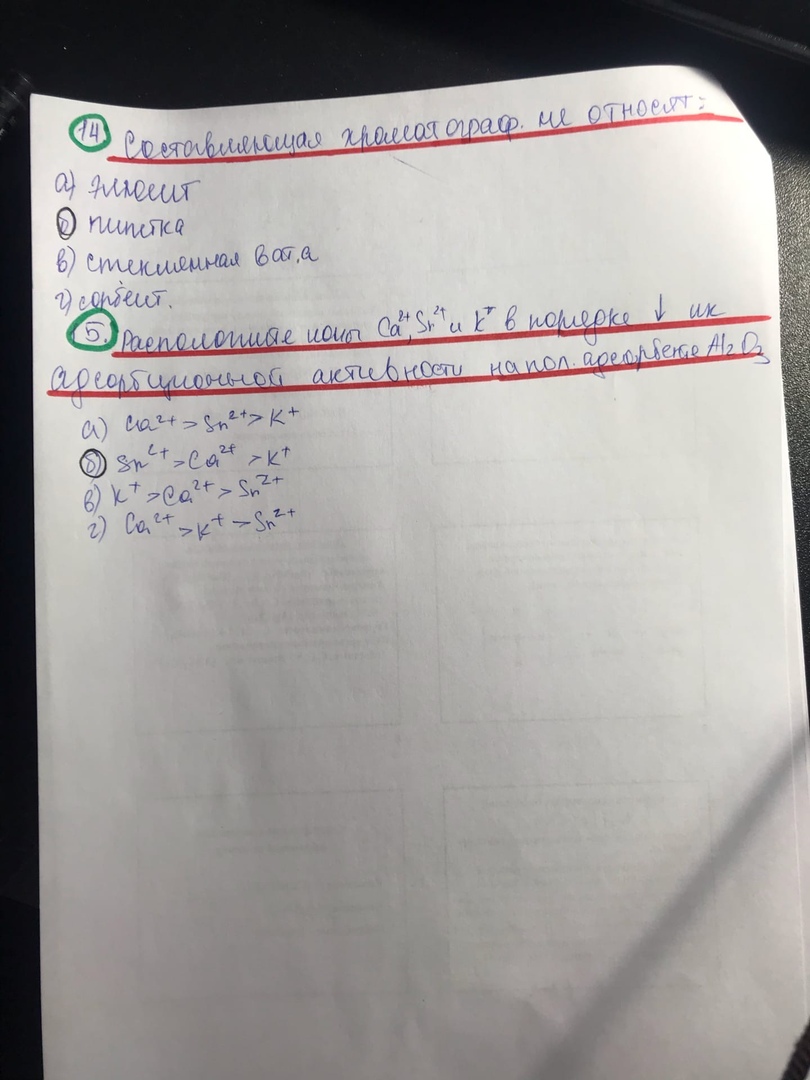 14 Составляющая хроматограф. не относят:
а) элюент
б) пипетка
в) стеклянная вата
г) сорбент.
5. Расположите ионы Ca²⁺, Sr²⁺ и K⁺ в порядке ↓ их
адсорбционной активности на пол. адсорбенте Al₂O₃
а) Ca²⁺ > Sr²⁺ > K⁺
б) Sr²⁺ > Ca²⁺ > K⁺
в) K⁺ > Ca²⁺ > Sr²⁺
г) Ca²⁺ > K⁺ > Sr²⁺